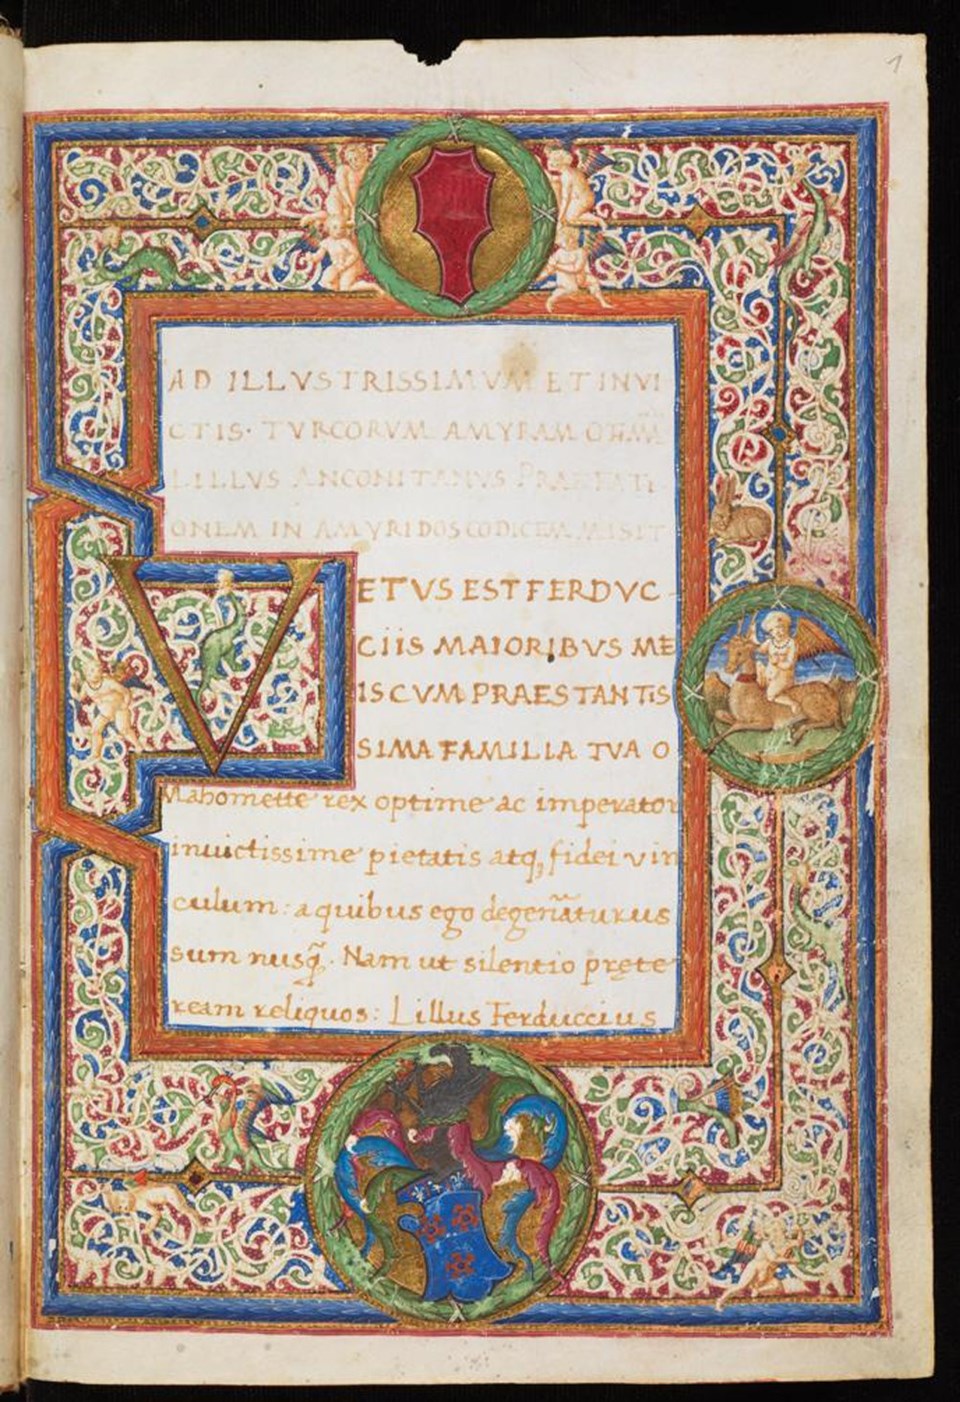 1
AD ILLVSTRISSIMVM ET INVI
CTIS· TVRCORVM AMYRAM OTHM̅A̅
LILLVS ANCONITANVS PRAEFATI
ONEM IN AMYRIDOS CODICEM MISIT
VETVS EST FERDVC-
CIIS MAIORIBVS ME
IS CVM PRAESTANTIS
SIMA FAMILIA TVA O
Mahomette rex optime ac imperator
inuictissime pietatis atq, fidei vin
culum: a quibus ego degen̅aturus
sum nusq̃. Nam ut silentio pręte
ream reliquos: Lillus Ferduccius